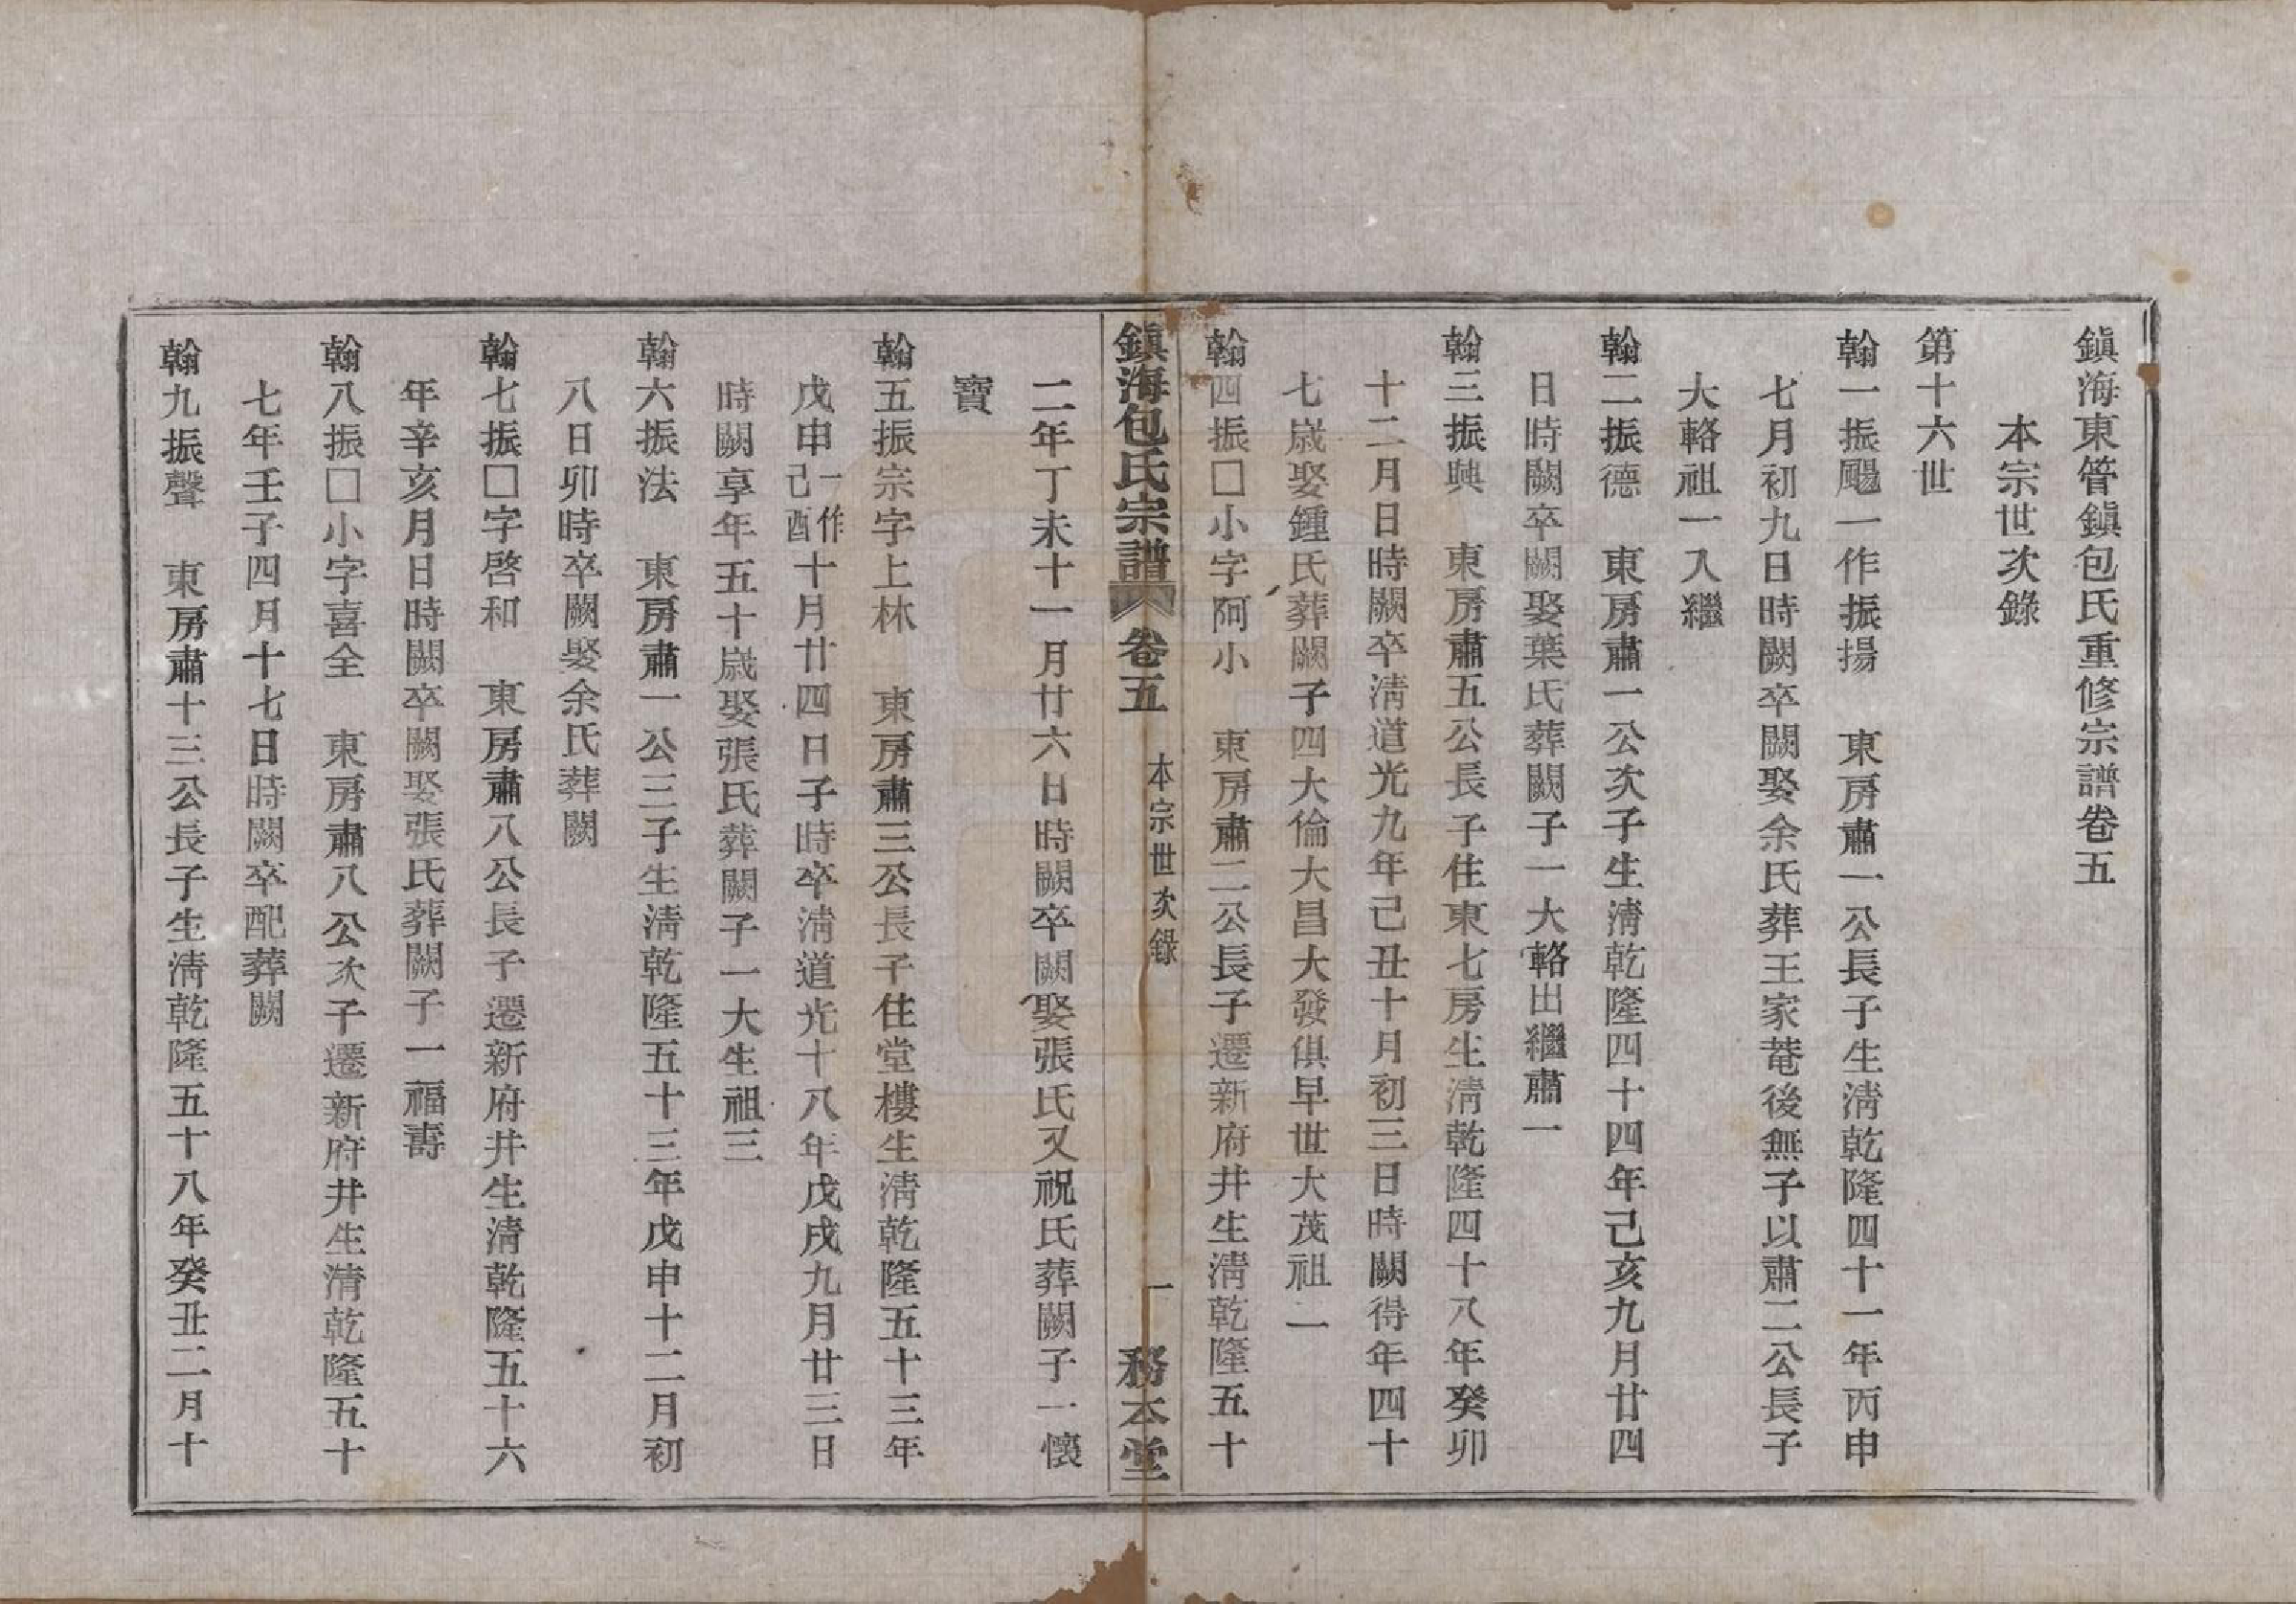 鎭海東管鎭包氏重修宗譜卷五
本宗世次錄
第十六世
翰一振颺一作振揚　東房肅一公長子生淸乾隆四十一年丙申
七月初九日時闕卒闕娶余氏葬王家菴後無子以肅二公長子
大輅祖一入繼
翰二振德　東房肅一公次子生淸乾隆四十四年己亥九月廿四
日時闕卒闕娶葉氏葬闕子一大輅出繼肅一
翰三振興　東房肅五公長子住東七房生淸乾隆四十八年癸卯
十二月日時闕卒淸道光九年己丑十月初三日時闕得年四十
七歲娶鍾氏葬闕子四大倫大昌大發俱早世大茂祖二
翰四振□小字阿小　東房肅二公長子遷新府井生淸乾隆五十
鎭海包氏宗譜　卷五　本宗世次錄　一　務本堂
二年丁未十一月廿六日時闕卒闕娶張氏又祝氏葬闕子一懷
寶
翰五振宗字上林　東房肅三公長子住堂樓生淸乾隆五十三年
戊申一作己酉十月廿四日子時卒淸道光十八年戊戌九月廿三日
時闕享年五十歲娶張氏葬闕子一大生祖三
翰六振法　東房肅一公三子生淸乾隆五十三年戊申十二月初
八日卯時卒闕娶余氏葬闕
翰七振□字啓和　東房肅八公長子遷新府井生淸乾隆五十六
年辛亥月日時闕卒闕娶張氏葬闕子一福壽
翰八振□小字喜全　東房肅八公次子遷新府井生淸乾隆五十
七年壬子四月十七日時闕卒配葬闕
翰九振聲　東房肅十三公長子生淸乾隆五十八年癸丑二月十